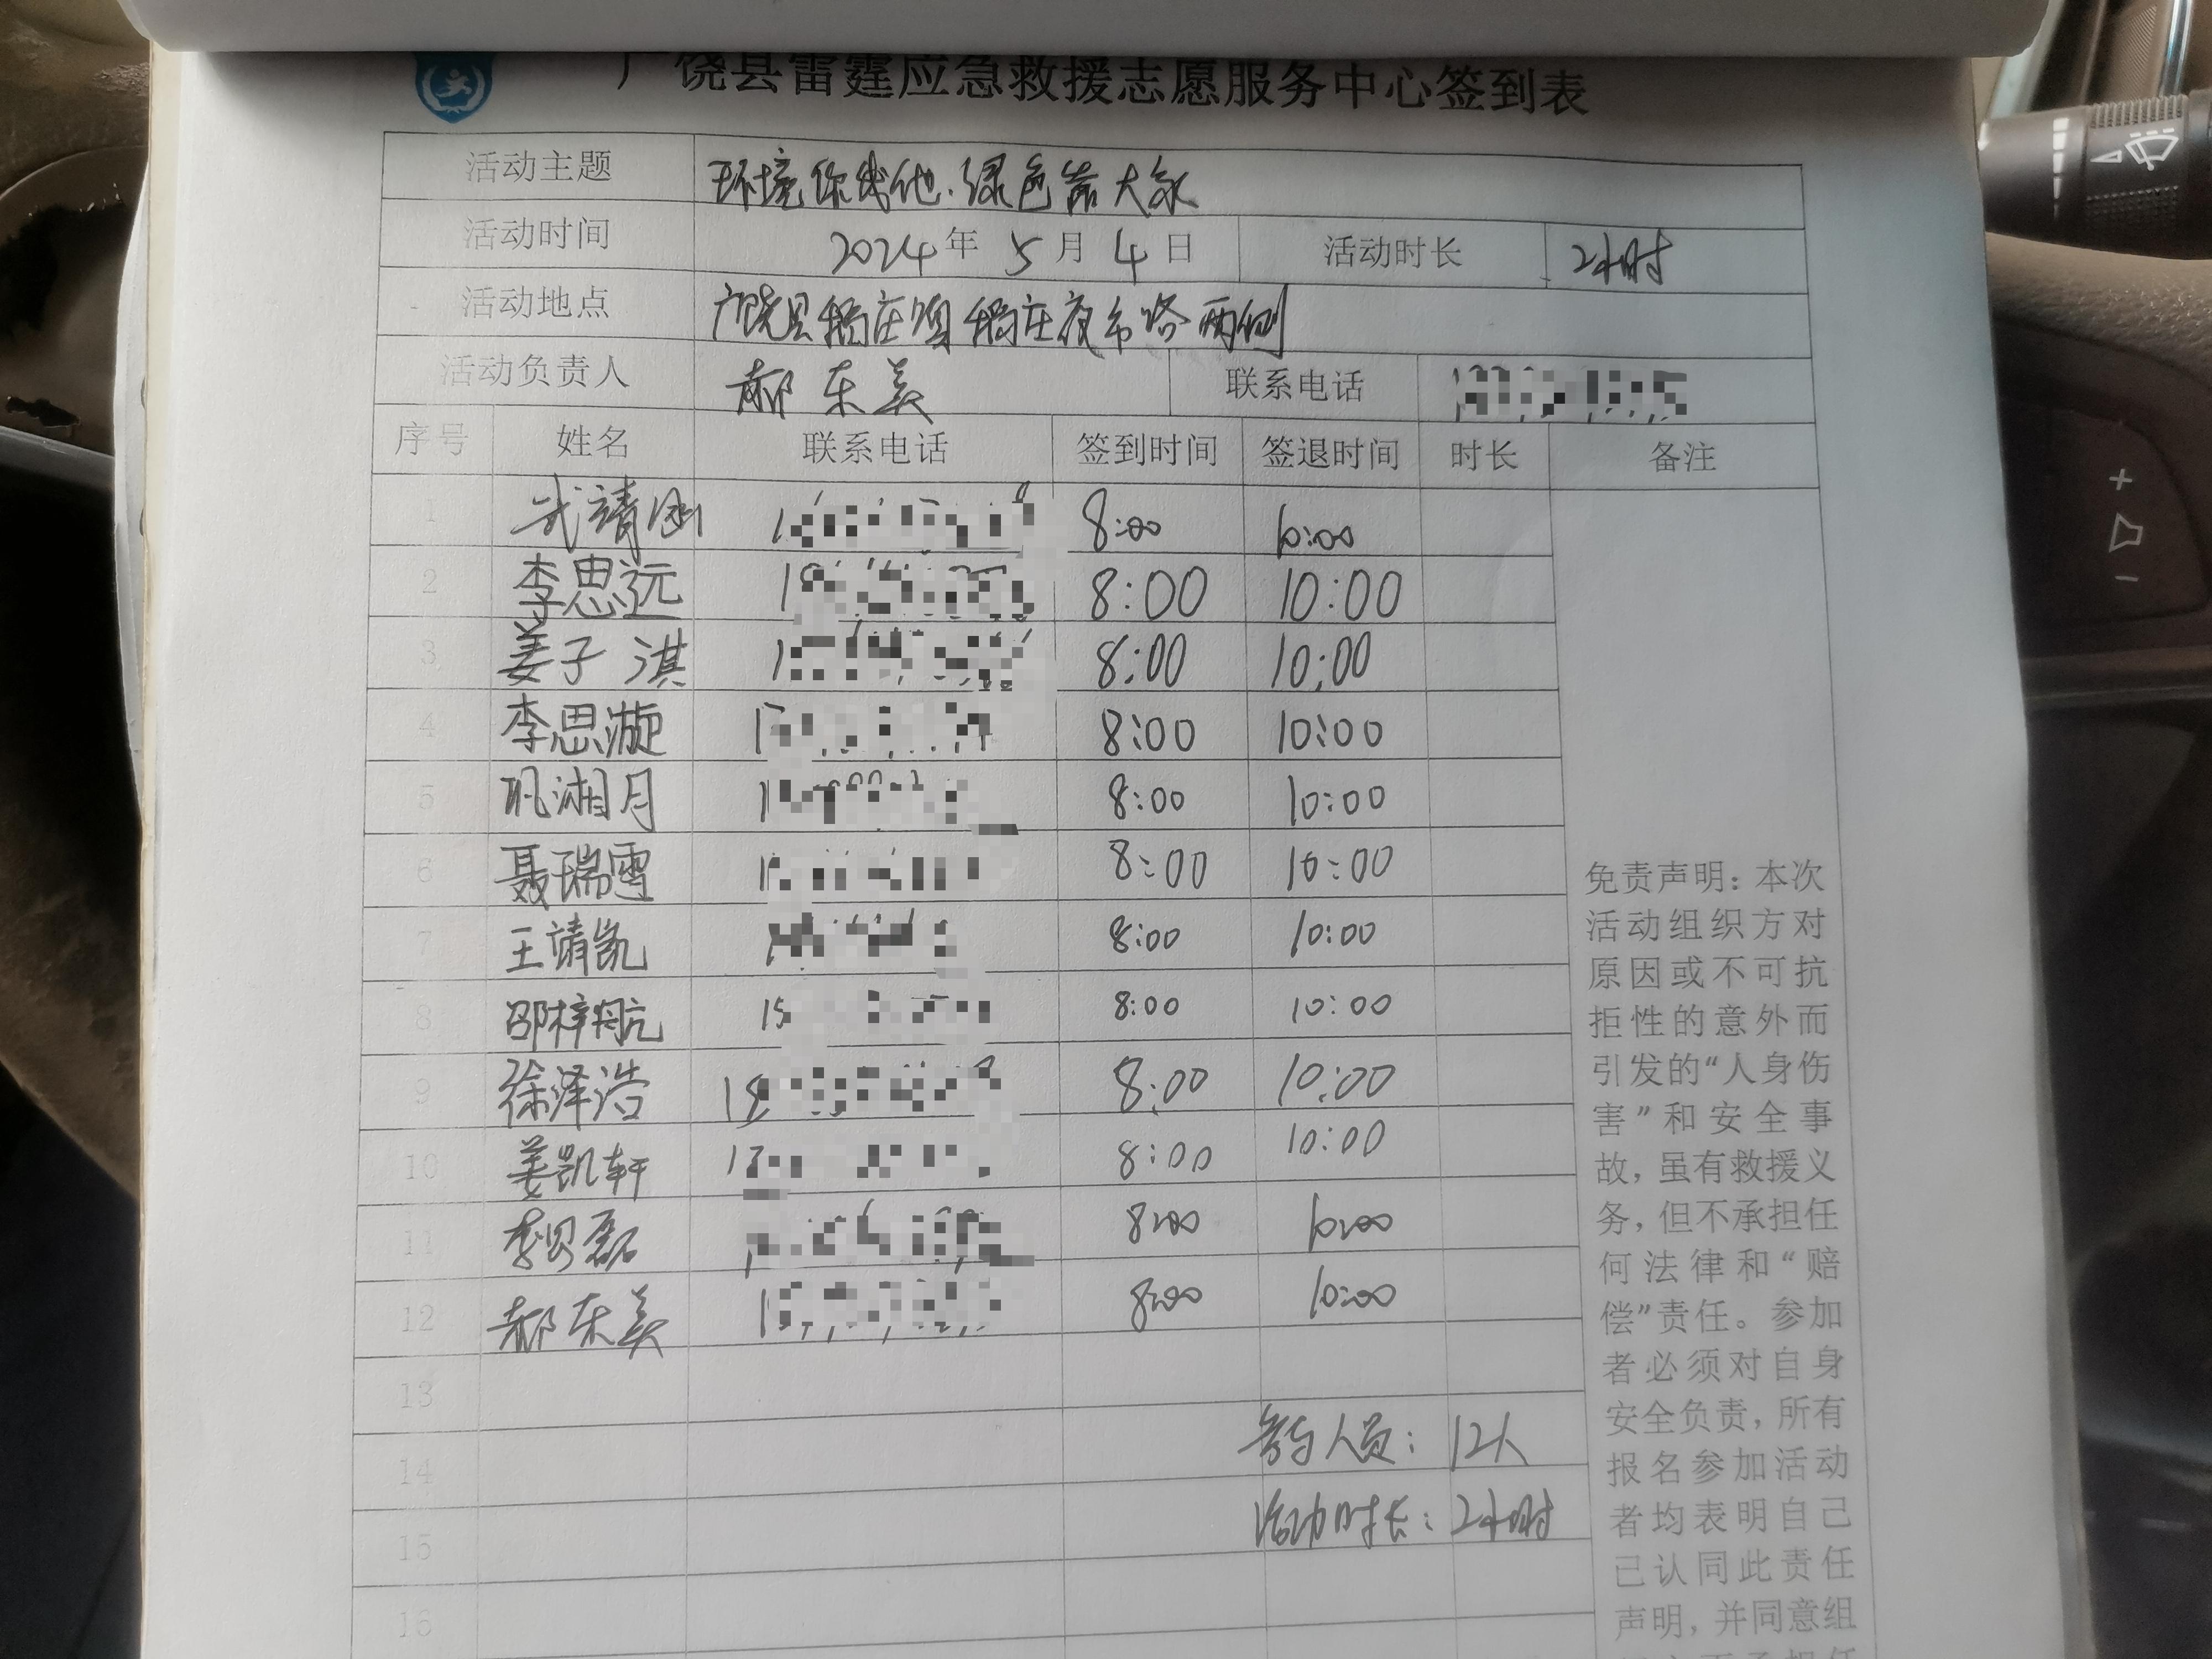 广饶县雷霆应急救援志愿服务中心签到表
活动主题 环境你我他.绿色靠大家
活动时间 2024年5月4日 活动时长 2小时
活动地点 广饶县稻庄镇稻庄夜市路两侧
活动负责人 郝东美 联系电话
序号 姓名 联系电话 签到时间 签退时间 时长 备注
1 武靖涵 1 8:00 10:00
2 李思远 1 8:00 10:00
3 姜子淇 1 8:00 10:00
4 李思漩 1 8:00 10:00
5 巩湘月 1 8:00 10:00
6 聂瑞雪 1 8:00 10:00
7 王靖凯 1 8:00 10:00
8 邵梓航 15 8:00 10:00
9 徐泽浩 18 8:00 10:00
10 姜凯轩 17 8:00 10:00
11 李贝磊 8:00 10:00
12 郝东美 1 8:00 10:00
13
14 参与人员：12人
15 活动时长：2小时
16
免责声明：本次
活动组织方对
原因或不可抗
拒性的意外而
引发的“人身伤
害”和安全事
故，虽有救援义
务，但不承担任
何法律和“赔
偿”责任。参加
者必须对自身
安全负责，所有
报名参加活动
者均表明自己
已认同此责任
声明，并同意组